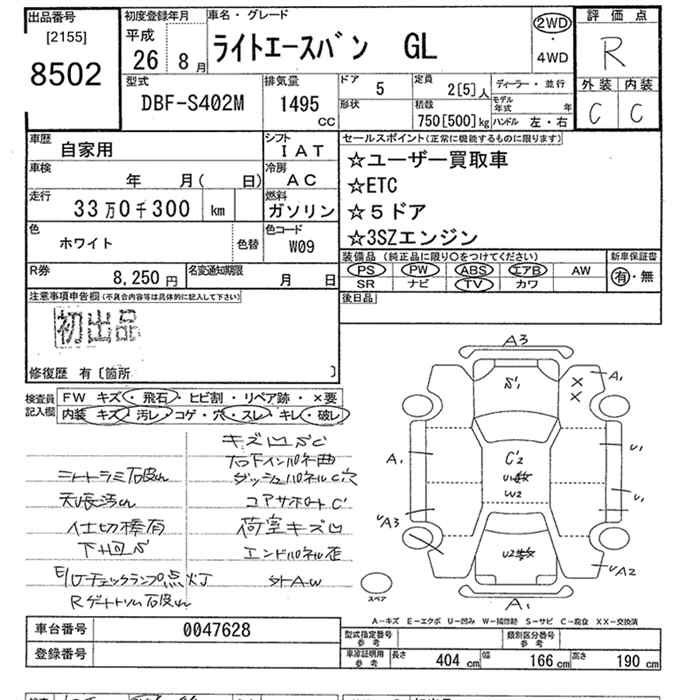 出品番号
[2155]
8502
初度登録年月
平成
26 8月
車名・グレード
ライトエースバン GL
2WD
・
4WD
評価点
R
外装 内装
C C
型式
DBF-S402M
排気量
1495 cc
ドア 5
形状
定員 2[5]人
積載 750[500]kg
ディーラー・並行
モデル年式 年
ハンドル 左・右
車歴 自家用
シフト IAT
車検 年 月( 日)
冷房 AC
走行 33万0千300 km
燃料 ガソリン
色 ホワイト 色替
色コード W09
R券 8,250円
名変通知期限 月 日
セールスポイント(正常に機能するものに限ります)
☆ユーザー買取車
☆ETC
☆5ドア
☆3SZエンジン
装備品(純正品に限り○をつけてください)
PS PW ABS エアB AW
SR ナビ TV カワ
新車保証書
有・無
後日品
注意事項申告欄(不具合内容等は具体的に記入して下さい)
初出品
修復歴 有〔箇所 〕
検査員記入欄
FW キズ・飛石・ヒビ割・リペア跡・×要
内装 キズ・汚レ・コゲ・穴・スレ・キレ・破レ
キズ凹SC
仕切棒有
下回S
コアサポートC
荷室キズ凹
エンドパネル歪
チェックランプ点灯
外AW
A3
A1
S1
××
A1
U1
C2
W2
U1
UA3
U2
UA2
A1
スペア
A-キズ E-エクボ U-凹み W-補修跡 S-サビ C-腐食 XX-交換済
車台番号 0047628
登録番号
型式指定番号 参考
類別区分番号 参考
車庫証明用 参考 長さ 404cm 幅 166cm 高さ 190cm